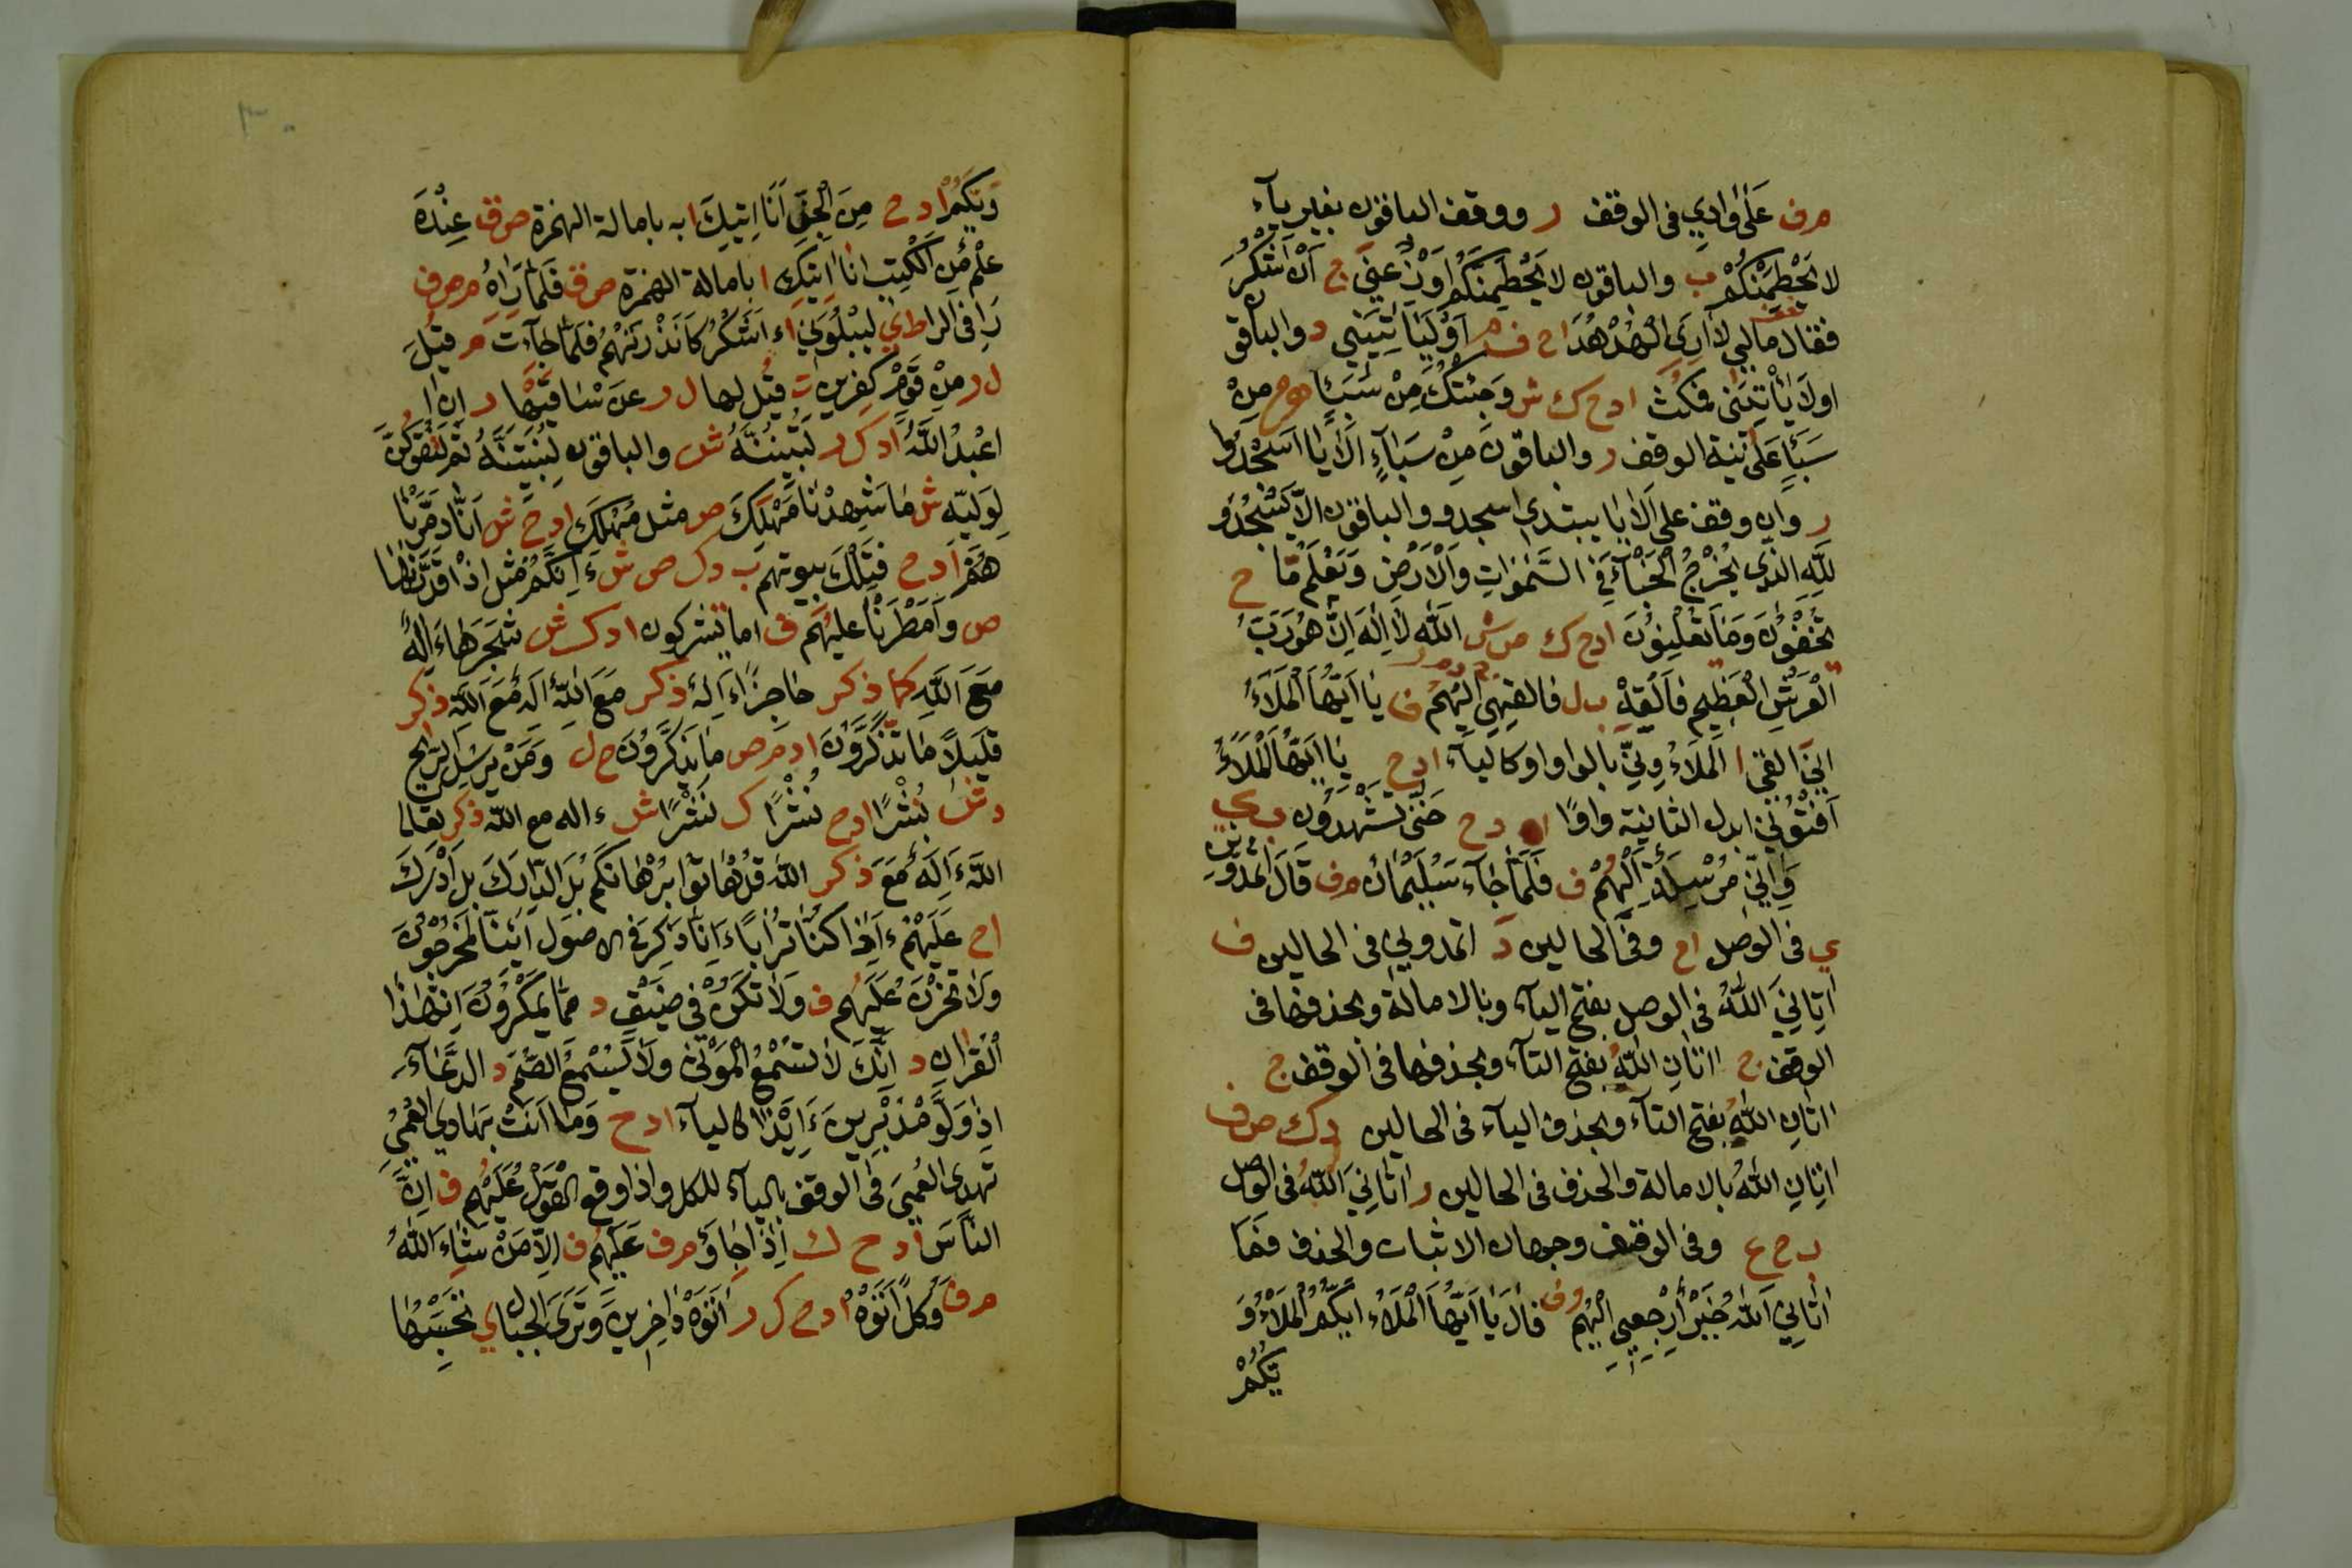 مرف عَلَى وَادِي فى الوقف ر ووقف الباقون بغير يآء
لا يَحْطِمَنْكُمْ ب والباقون لا يَحْطِمَنَّكُمْ اَوْزِعْنِىَ ج اَنْ اَشْكُرَ
فقال مالي لا اَرَى الْهُدْهُدَ اح ف م اَوْ لَيَاْتِيَنَّنِي د والباقون
اولَيَاْتِيَنّى فمكُث ادح ك ش وَجِئْتُكَ مِنْ سَبَاَ هح مِنْ
سَبَاْ عَلى نية الوقف ز والباقون مِنْ سَبَاءٍ اَلَا يَا اسْجُدُوا
ر وان وقف على اَلا يا يبتدى اسجدو والباقون الاّ يَسْجُدُو
لِلّهِ الذي يُخْرِجُ الْخَبْاَ فِى السَّمٰوَاتِ وَالْاَرْضِ وَيَعْلَمُ مَّا ح
تُخْفُونَ وَمَا تُعْلِنُونَ ادح ك ص ش اَللّه لا اِلٰهَ اِلَّا هُوَ رَبُّ
الْعَرْشِ الْعَظِيمِ فَاَلْقِهِ ب ل فالقهي اليهُم ف يا اَيُّهَا الْمَلَاءُ
انِّى القى ا اَلْمَلَاءُ وِنِّى بالواو او كاليآء ادح يَا اَيُّهَا الْمَلَاءُ
اَفْتُوْنِي ابدل الثانية واوًا ا دح حَتّى تَشْهَدُونِ ب ي
وَاِنِّى مُرْسِلَةٌ اِلَيْهُمْ ف فَلَمَّا جَآءَ سُلَيْمَانَ مرف قَالَ اَتُمِدُّونَنِ
ي فى الوصل اح وفى الحالين د اتمدونِي فى الحالين ف
اٰتَانِيَ اللّٰهُ فى الوصل بفتح اليآء وبالامالة وبحذفها فى
الوقف ج اٰتَانِ اللّٰهُ بفتح التآء وبحذفها فى الوقف ج
اتانِ اللّهُ بفتح التآء وبحذف اليآء فى الحالين د ك ص ف
اتانِ اللّهُ بالامالة والحذف فى الحالين ر اتانِيَ اللّهُ فى الوصل
ب ح ع وفى الوقف وجهان الاثبات والحذف فَمَا
اٰتَانِيَ اللّٰهُ خَيْرٌ اِرْجِعِي اليهُم وف قال يَا اَيُّهَا الْمَلَاءُ ايُّكُمْ الْمَلَاءُ وَ
يُّكُمْ
وَيُّكُمْ ادح مِنَ الْجِنِّ اَنَا اٰتِيكَ به بامالة الهمزة ص ق عِنْدَهُ
عِلْمٌ مِنَ الْكِتٰبِ انا اٰتِيكَ ا بامالة الهمزة ص ق فَلَمَّا رَاٰهُ م ص ف
لِيَبْلُوَنِيَ ا ءاَشْكُرُ فَلَمَّا جَآءَتْ م قِيلَ
ل ر مِنْ قَوْمٍ كٰفِرِينَ ت قِيلَ لها ل ر عَنْ سَاْقَيْهَا ز اَنِ ا
اعْبُدُ اللّهَ ادك ر لَتُبَيِّتُنَّهُ ش والباقون لَنُبَيِّتَنَّهُ ثُمَّ لَتَقُولُنَّ
لِوَلِيِّه ش مَا شَهِدْنَا مَهْلَكَ ص مثل مُهْلَكَ ادح ش اَنَّا دَمَّرْنَا
هُمْ ادح فَتِلْكَ بيوتهم ب دك ص ش ءَاَئِنَّكُمْ مثل اذا قَدَرْنَاهَا
ص وَاَمْطَرْنَا عليهُم ف اما تشركون ا د ك ش شَجَرَهَا ءَاِلهٌ
مَعَ اللّهِ كما ذكر حَاجِزًا ءَاِلهٌ ذكر مَعَ اللّهِ ءاِلهٌ مَعَ اللّه ذكر
قَلِيلًا مَا تَذَّكَّرُونَ ادم ص مَا يَذَّكَّرُونَ ح ل وَمَنْ يُرْسِلُ الرِّيح
د ش نُشُرًا ادح نُشْرًا ك نَشْرًا ش ءاله مع اللّه ذكر تعالى
اللّهُ ءَاِلهٌ مَعَ ذكر اللّه قُلْ هَاتُوا بُرْهَانَكُم بَلِ ادّٰرَكَ بَل اَدْرَكَ
اح عَلَيْهُمْ ءَاِذَا كُنَّا تُرَابًا ءَاِنَّا ذكر فى الاصول اَئِنَّا لَمُخْرَجُونَ
ولَا تَحْزَنْ عَلَيْهُم ف وَلَا تَكُنْ فِى ضِيْقٍ د مما يَمْكُرُونَ اِنَّ هٰذَا
الْقُرٰان د اِنَّكَ لَا تُسْمِعُ الْمَوْتٰى وَلَا يَسْمَعُ الصُّمُّ د الدُّعَآءَ
اِذَا وَلَّوْ مُدْبِرِينَ ءَايِذَا كاليآء ادح وَمَا اَنْتَ بِهَادِي الْعُمْىِ
تَهْدِى العُمْيَ ف الوقف باليآء للكل واذا وقع الْقَوْلُ عَلَيْهُم ف اِنَّ
النَّاسَ ادح ك اِذَا جَاؤُ مرف عَلَيْهُم ف اِلَّا مَنْ شَآءَ اللّٰهُ
مرف وَكُلٌّ اٰتَوْهُ ادح ك ر اَتَوْهُ دَاخِرِينَ وَتَرَى الْجِبَال ي تَحْسِبُهَا
٣٠